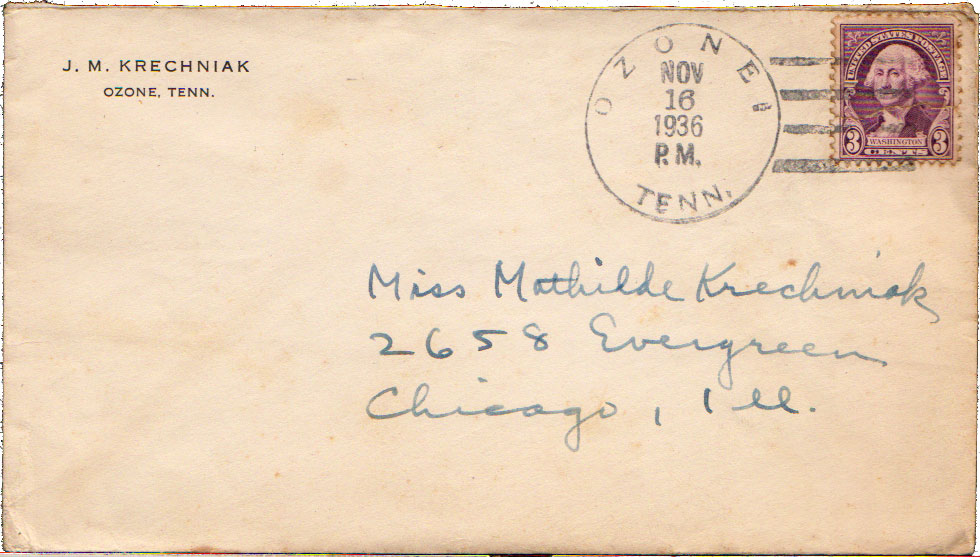 J. M. KRECHNIAK
OZONE, TENN.
OZONE
NOV
16
1936
P.M.
TENN.
UNITED STATES POSTAGE
3 WASHINGTON 3
CENTS
Miss Mathilde Krechniak
2658 Evergreen
Chicago, Ill.